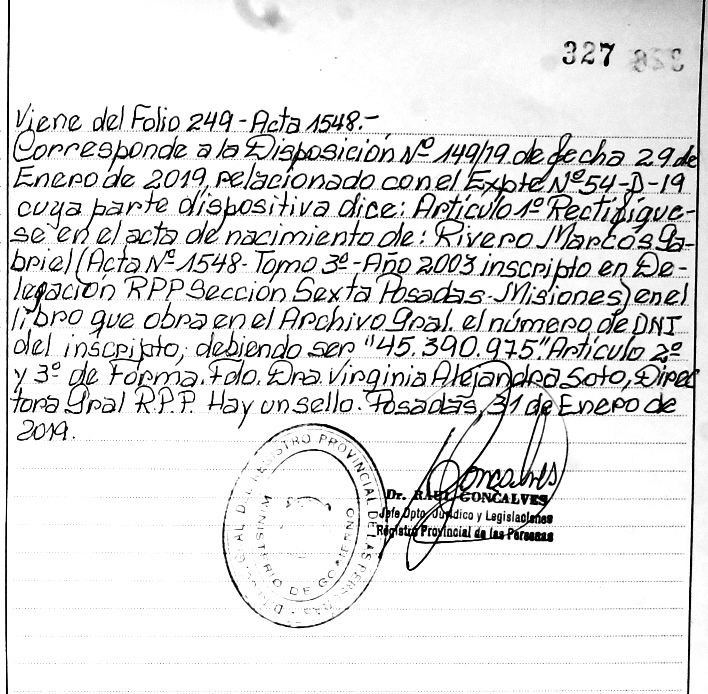 327 328
Viene del Folio 249-Acta 1548.-
Corresponde a la Disposición Nº 149/19 de fecha 29 de
Enero de 2019, relacionado con el Expte Nº 54-D-19
cuya parte dispositiva dice: Artículo 1º Rectifique-
se en el acta de nacimiento de: Rivero Marcos Ga-
briel (Acta Nº 1548-Tomo 3º-Año 2003 inscripto en De-
legación RPP Sección Sexta Posadas-Misiones) en el
libro que obra en el Archivo Gral. el número de DNI
del inscripto, debiendo ser "45.390.975". Artículo 2º
y 3º de Forma. Fdo. Dra. Virginia Alejandra Soto, Direc
tora Gral R.P.P. Hay un sello. Posadas, 31 de Enero de
2019.
Goncalves
Dr. RAUL GONCALVES
Jefe Dpto. Jurídico y Legislaciones
Registro Provincial de las Personas
GRAL DEL REGISTRO PROVINCIAL DE LAS PERSONAS
MINISTERIO DE GOBIERNO